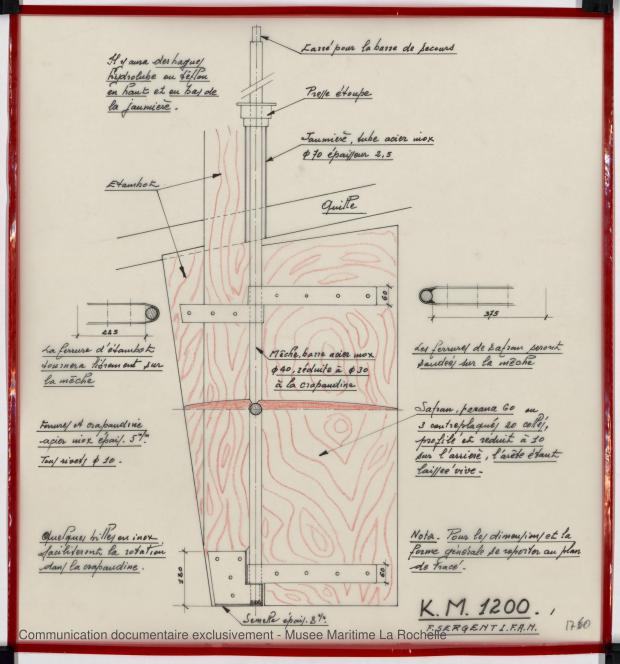 Carré pour la barre de secours
Il y aura des bagues
hydrolube ou téflon
en haut et en bas de
la jaumière.
Presse étoupe
Jaumière, tube acier inox
φ 70 épaisseur 2,5
Etambot
Quille
60
225
375
La ferrure d'étambot
tournera librement sur
la mèche
Mèche, barre acier inox
φ 40, réduite à φ 30
à la crapaudine
Les ferrures de safran seront
soudées sur la mèche
Ferrures et crapaudine
acier inox épais. 5 m/m
Tous rivets φ 10.
Safran, panana 60 ou
3 contreplaqués 20 collés,
profilé et réduit à 10
sur l'arrière, l'arête étant
laissée vive.
Quelques billes en inox
faciliteront la rotation
dans la crapaudine.
Nota. Pour les dimensions et la
forme générale se reporter au plan
de tracé.
180
60
Semelle épais. 8 m/m
K.M. 1200.
F. SERGENT I.F.A.N.
Communication documentaire exclusivement - Musee Maritime La Rochelle